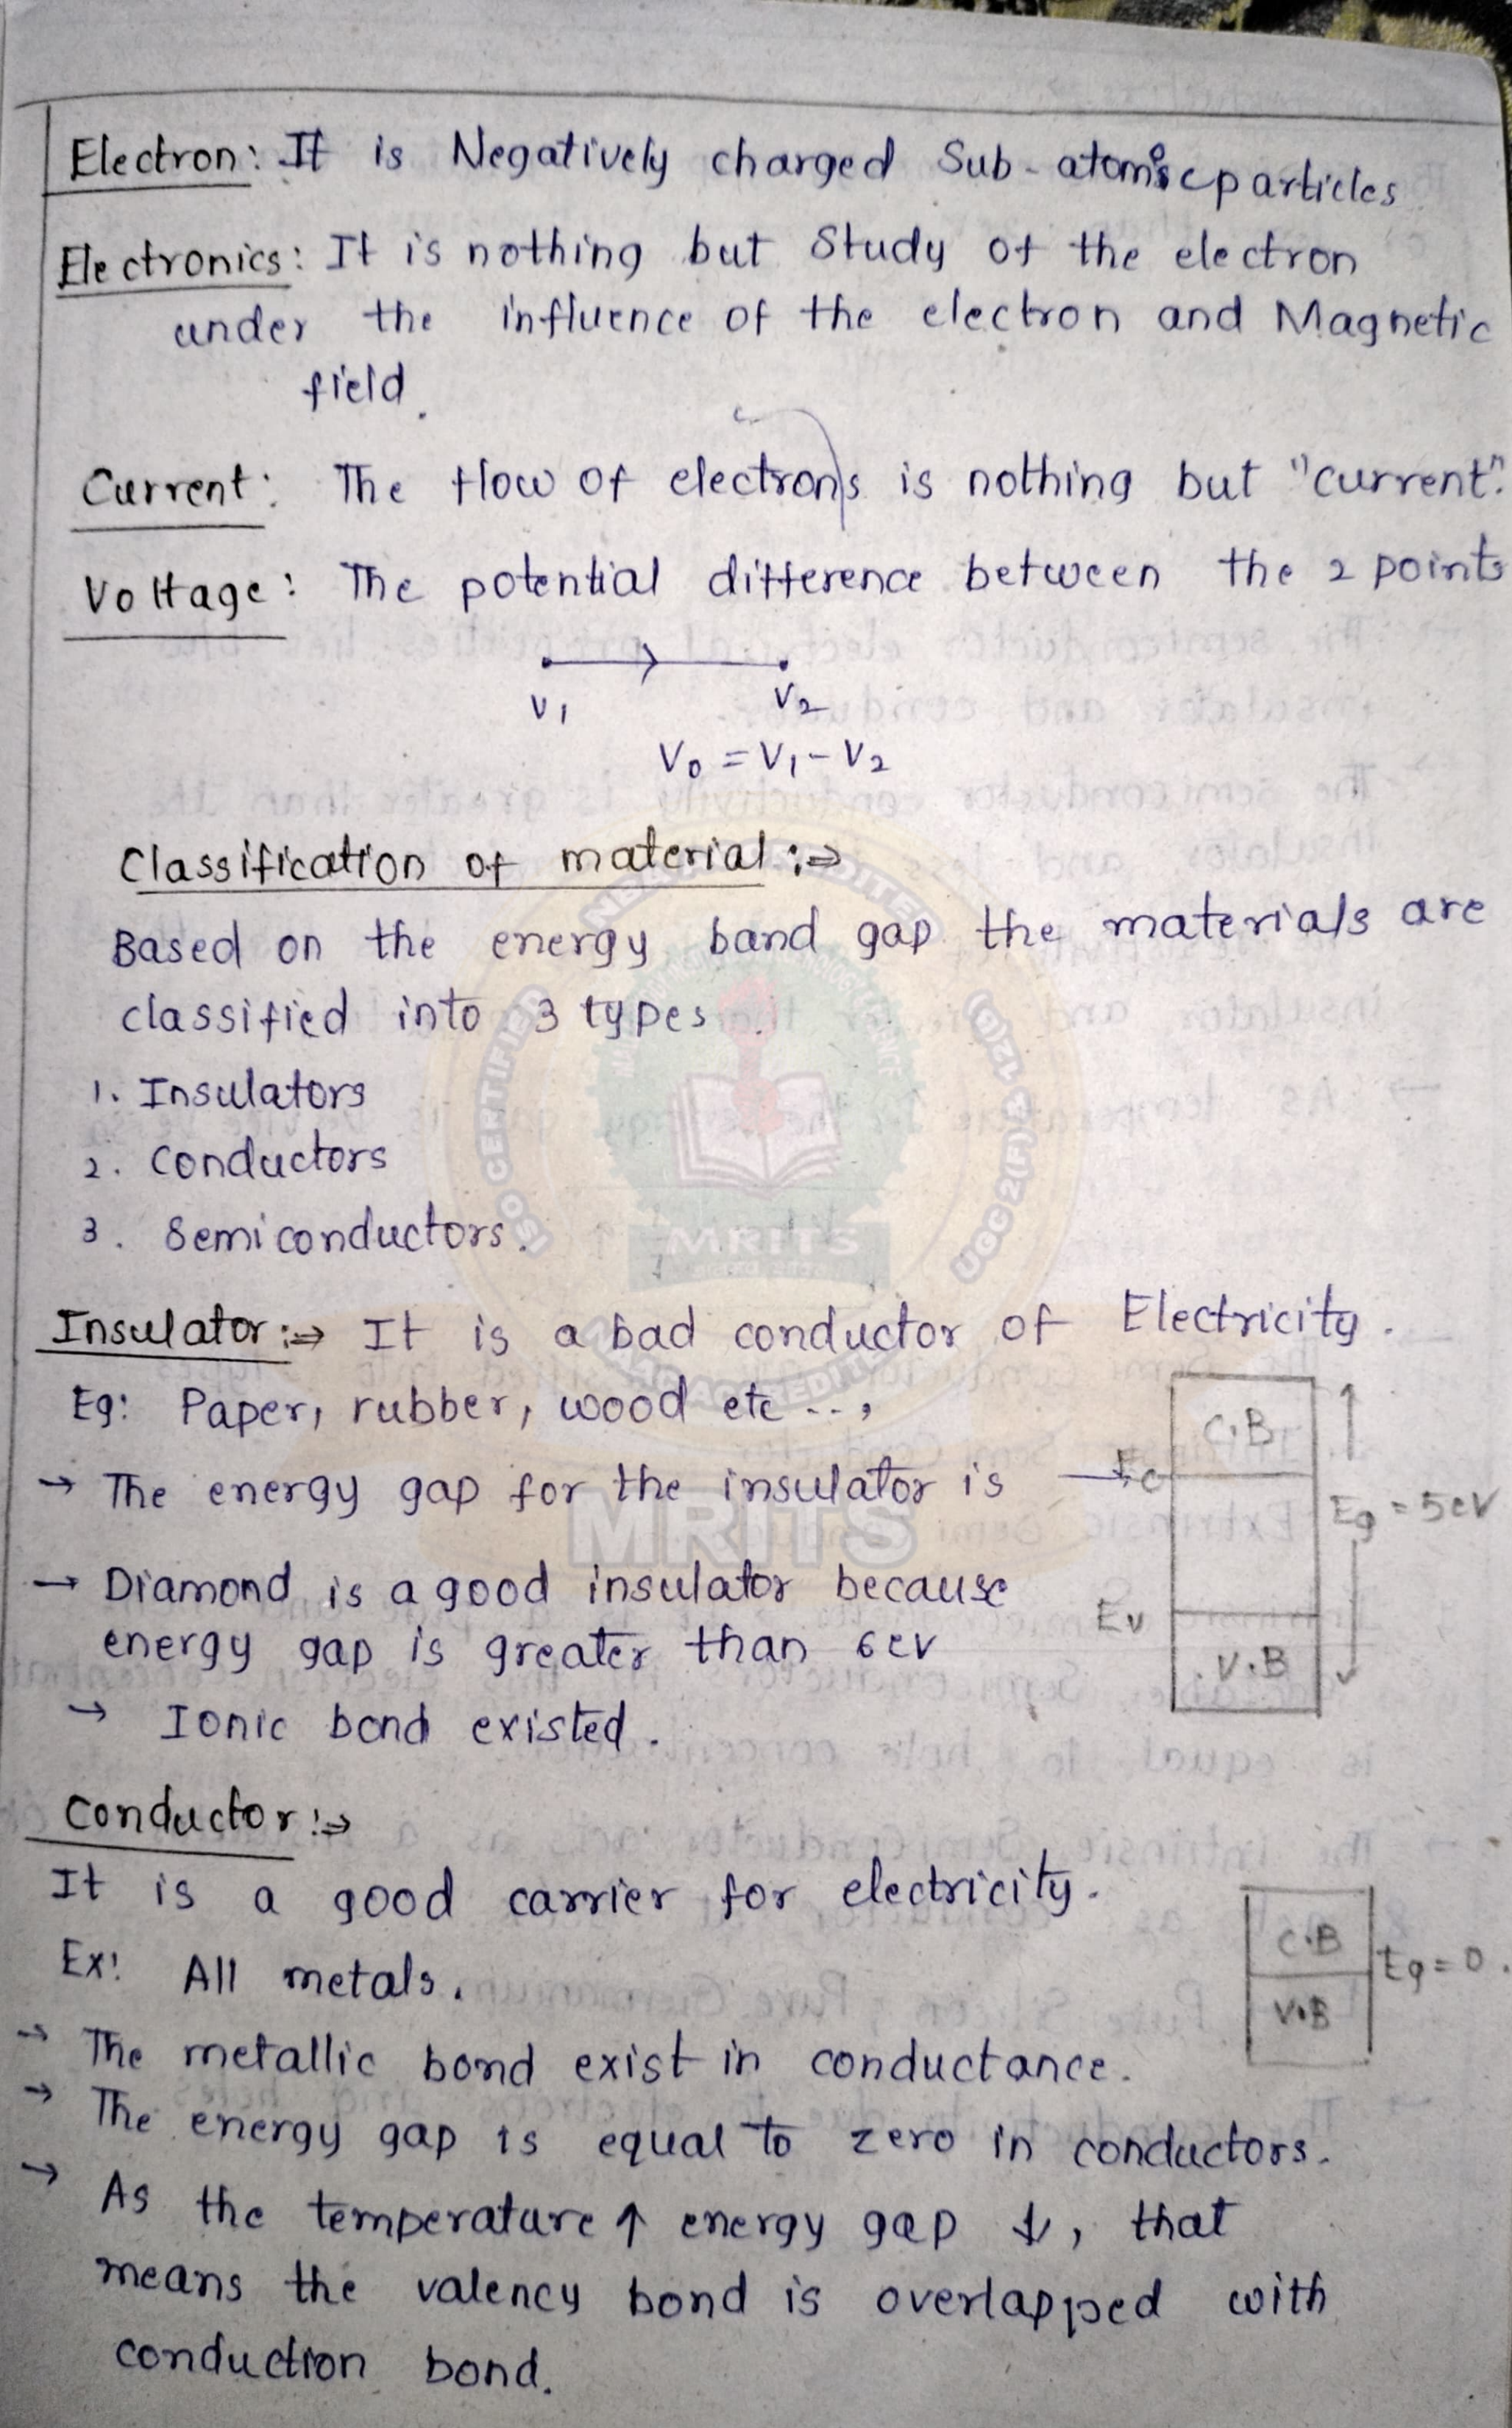 Electron: It is Negatively charged Sub-atomic particles
Electronics: It is nothing but Study of the electron
under the influence of the electron and Magnetic
field.
Current: The flow of electrons is nothing but "current".
Voltage: The potential difference between the 2 points
V1 V2
V0 = V1 - V2
Classification of material :⇒
Based on the energy band gap the materials are
classified into 3 types.
1. Insulators
2. Conductors
3. Semiconductors.
Insulator :⇒ It is a bad conductor of Electricity.
Eg: Paper, rubber, wood etc...,
→ The energy gap for the insulator is →
C.B
Ec
Eg = 5eV
Ev
V.B
→ Diamond is a good insulator because
energy gap is greater than 6ev
→ Ionic bond existed.
Conductor :⇒
It is a good carrier for electricity.
Ex: All metals.
C.B
V.B
Eg = 0.
→ The metallic bond exist in conductance.
→ The energy gap is equal to zero in conductors.
→ As the temperature ↑ energy gap ↓, that
means the valency bond is overlapped with
conduction bond.
MRITS
MRITS
ISO CERTIFIED